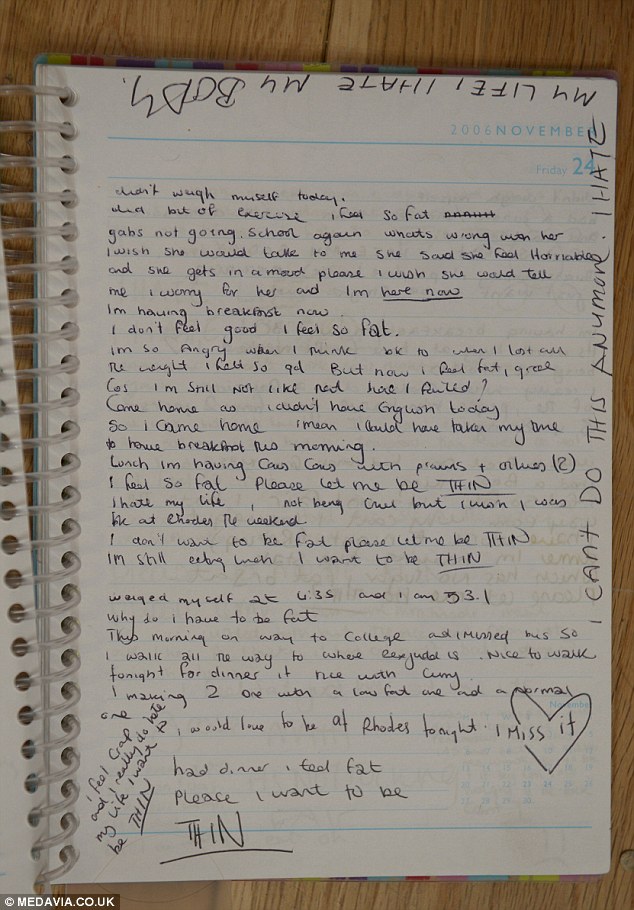 MY LIFE, I HATE MY BODY.
2006 NOVEMBER
Friday 24
didn't weigh myself today.
did bit of exercise i feel so fat
gabs not going. School again whats wrong with her
I wish she would talk to me she said she feel Horriable
and she gets in a mood please I wish she would tell
me I worry for her and Im here now
Im having breakfast now.
I don't feel good I feel so fat.
Im so Angry when I think bk to when I lost all
the weight I felt so gd But now I feel fat, great
Cos Im still not like have I failed?
Came home as i didn't have English today
So I came home i mean i could have taken my time
to have breakfast this morning.
Lunch Im having Cous Cous with prawns + olives (2)
I feel so fat Please let me be THIN
I hate my life, not being but I wish I was
bk at Rhodes the weekend
I don't want to be fat please let me be THIN
Im still eating I want to be THIN
weiged myself at 4:35 and I am 53.1
why do i have to be fat
This morning on way to College and i missed bus so
I walk all the way to where is. Nice to walk
tonight for dinner it rice with Curry
I making 2 one with a low fat one and a normal
one
i would love to be at Rhodes tonight. I MISS it
had dinner i feel fat
Please I want to be
THIN
i feel crap
and I really do hate
my life i want to
be THIN
I CANT DO THIS ANYMORE. I HATE
© MEDAVIA.CO.UK